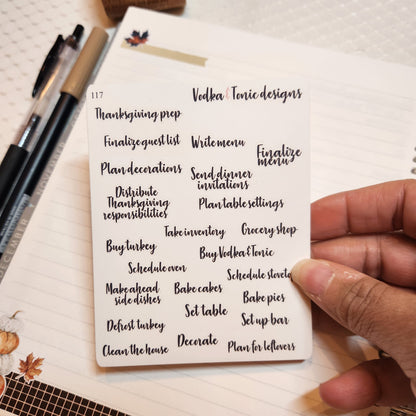 117
Vodka&Tonic designs
Thanksgiving prep
Finalize guest list
Write menu
Finalize
menu
Plan decorations
Send dinner
invitations
Distribute
Thanksgiving
responsibilities
Plan table settings
Take inventory
Grocery shop
Buy turkey
Buy Vodka&Tonic
Schedule oven
Schedule
Make ahead
side dishes
Bake cakes
Bake pies
Defrost turkey
Set table
Set up bar
Clean the house
Decorate
Plan for leftovers
DECEMBER